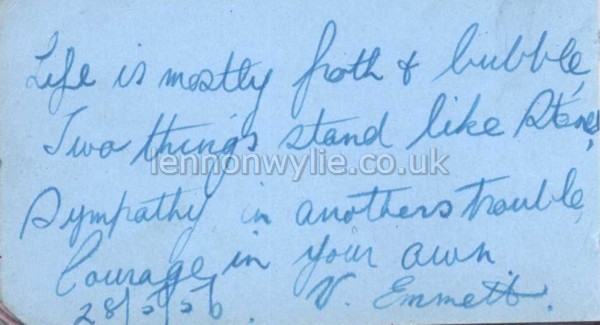 Life is mostly froth & bubble,
Two things stand like stone,
lennonwylie.co.uk
Sympathy in anothers trouble
Courage in your own
28/5/56. V. Emmett.